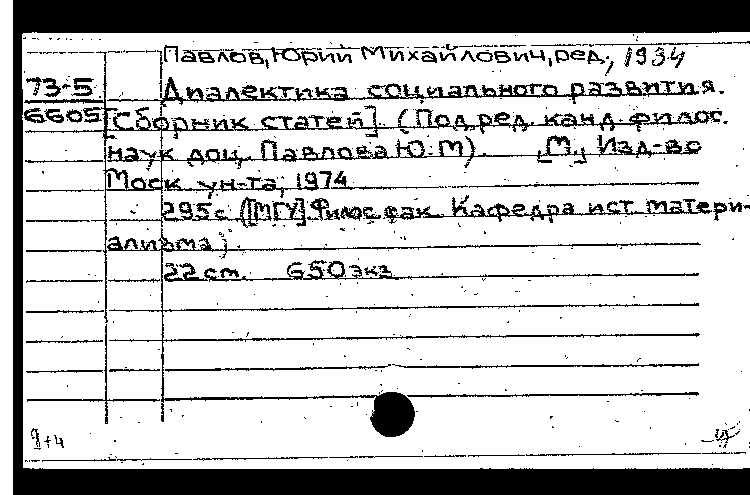 Павлов, Юрий Михайлович, ред., 1934
73-5
6605
Диалектика социального развития.
[Сборник статей]. (Под ред. канд. филос.
наук доц. Павлова Ю.М). [М.], Изд-во
Моск ун-та, 1974
295с. ([МГУ] Филос фак. Кафедра ист матери-
ализма).
22 см. 650 экз
9+4